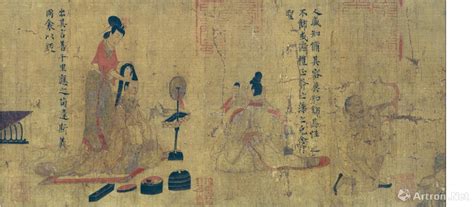 人咸知脩其容莫知飾其性性之
不飾或愆禮正斧之藻之克念作
聖
出其言善千里應之苟違斯義
則同衾以疑
Artron.Net